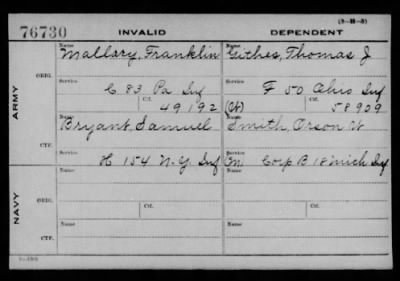 76730 INVALID DEPENDENT (3-B-3)
ARMY
ORIG.
Name Name
Mallary, Franklin Githes, Thomas J
Service Service
C 83 Pa Inf F 50 Ohio Inf
Ctf. Ctf.
49192 (Ct) 58909
CTF.
Name Name
Bryant, Samuel Smith, Orson W
Service Service
H 154 N.Y. Inf (M Corp B 18 Mich Inf
NAVY
ORIG.
Name Ctf. Name Ctf.
CTF.
Name Name